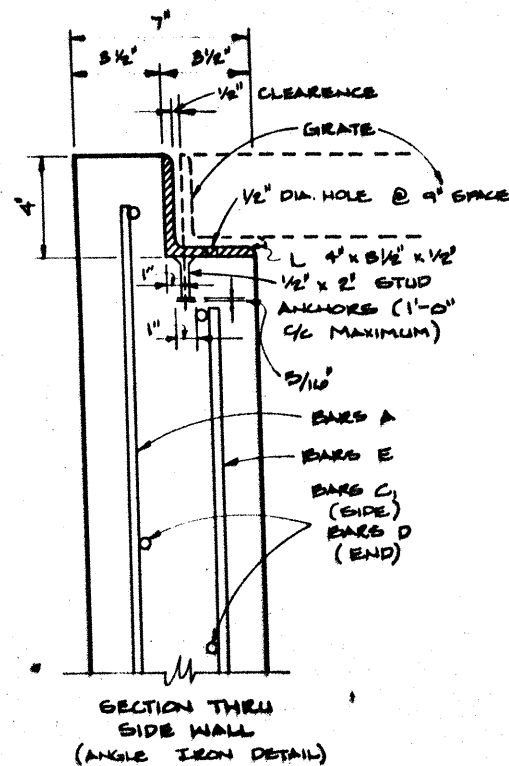 7"
3 1/2" 3 1/2"
1/2" CLEARENCE
GRATE
4"
1/2" DIA. HOLE @ 9" SPACE
L 4" x 3 1/2" x 1/2"
1" 1/2" x 2" STUD
ANCHORS (1'-0"
1" C/C MAXIMUM)
5/16"
BARS A
BARS E
BARS C,
(SIDE)
BARS D
(END)
SECTION THRU
SIDE WALL
(ANGLE IRON DETAIL)